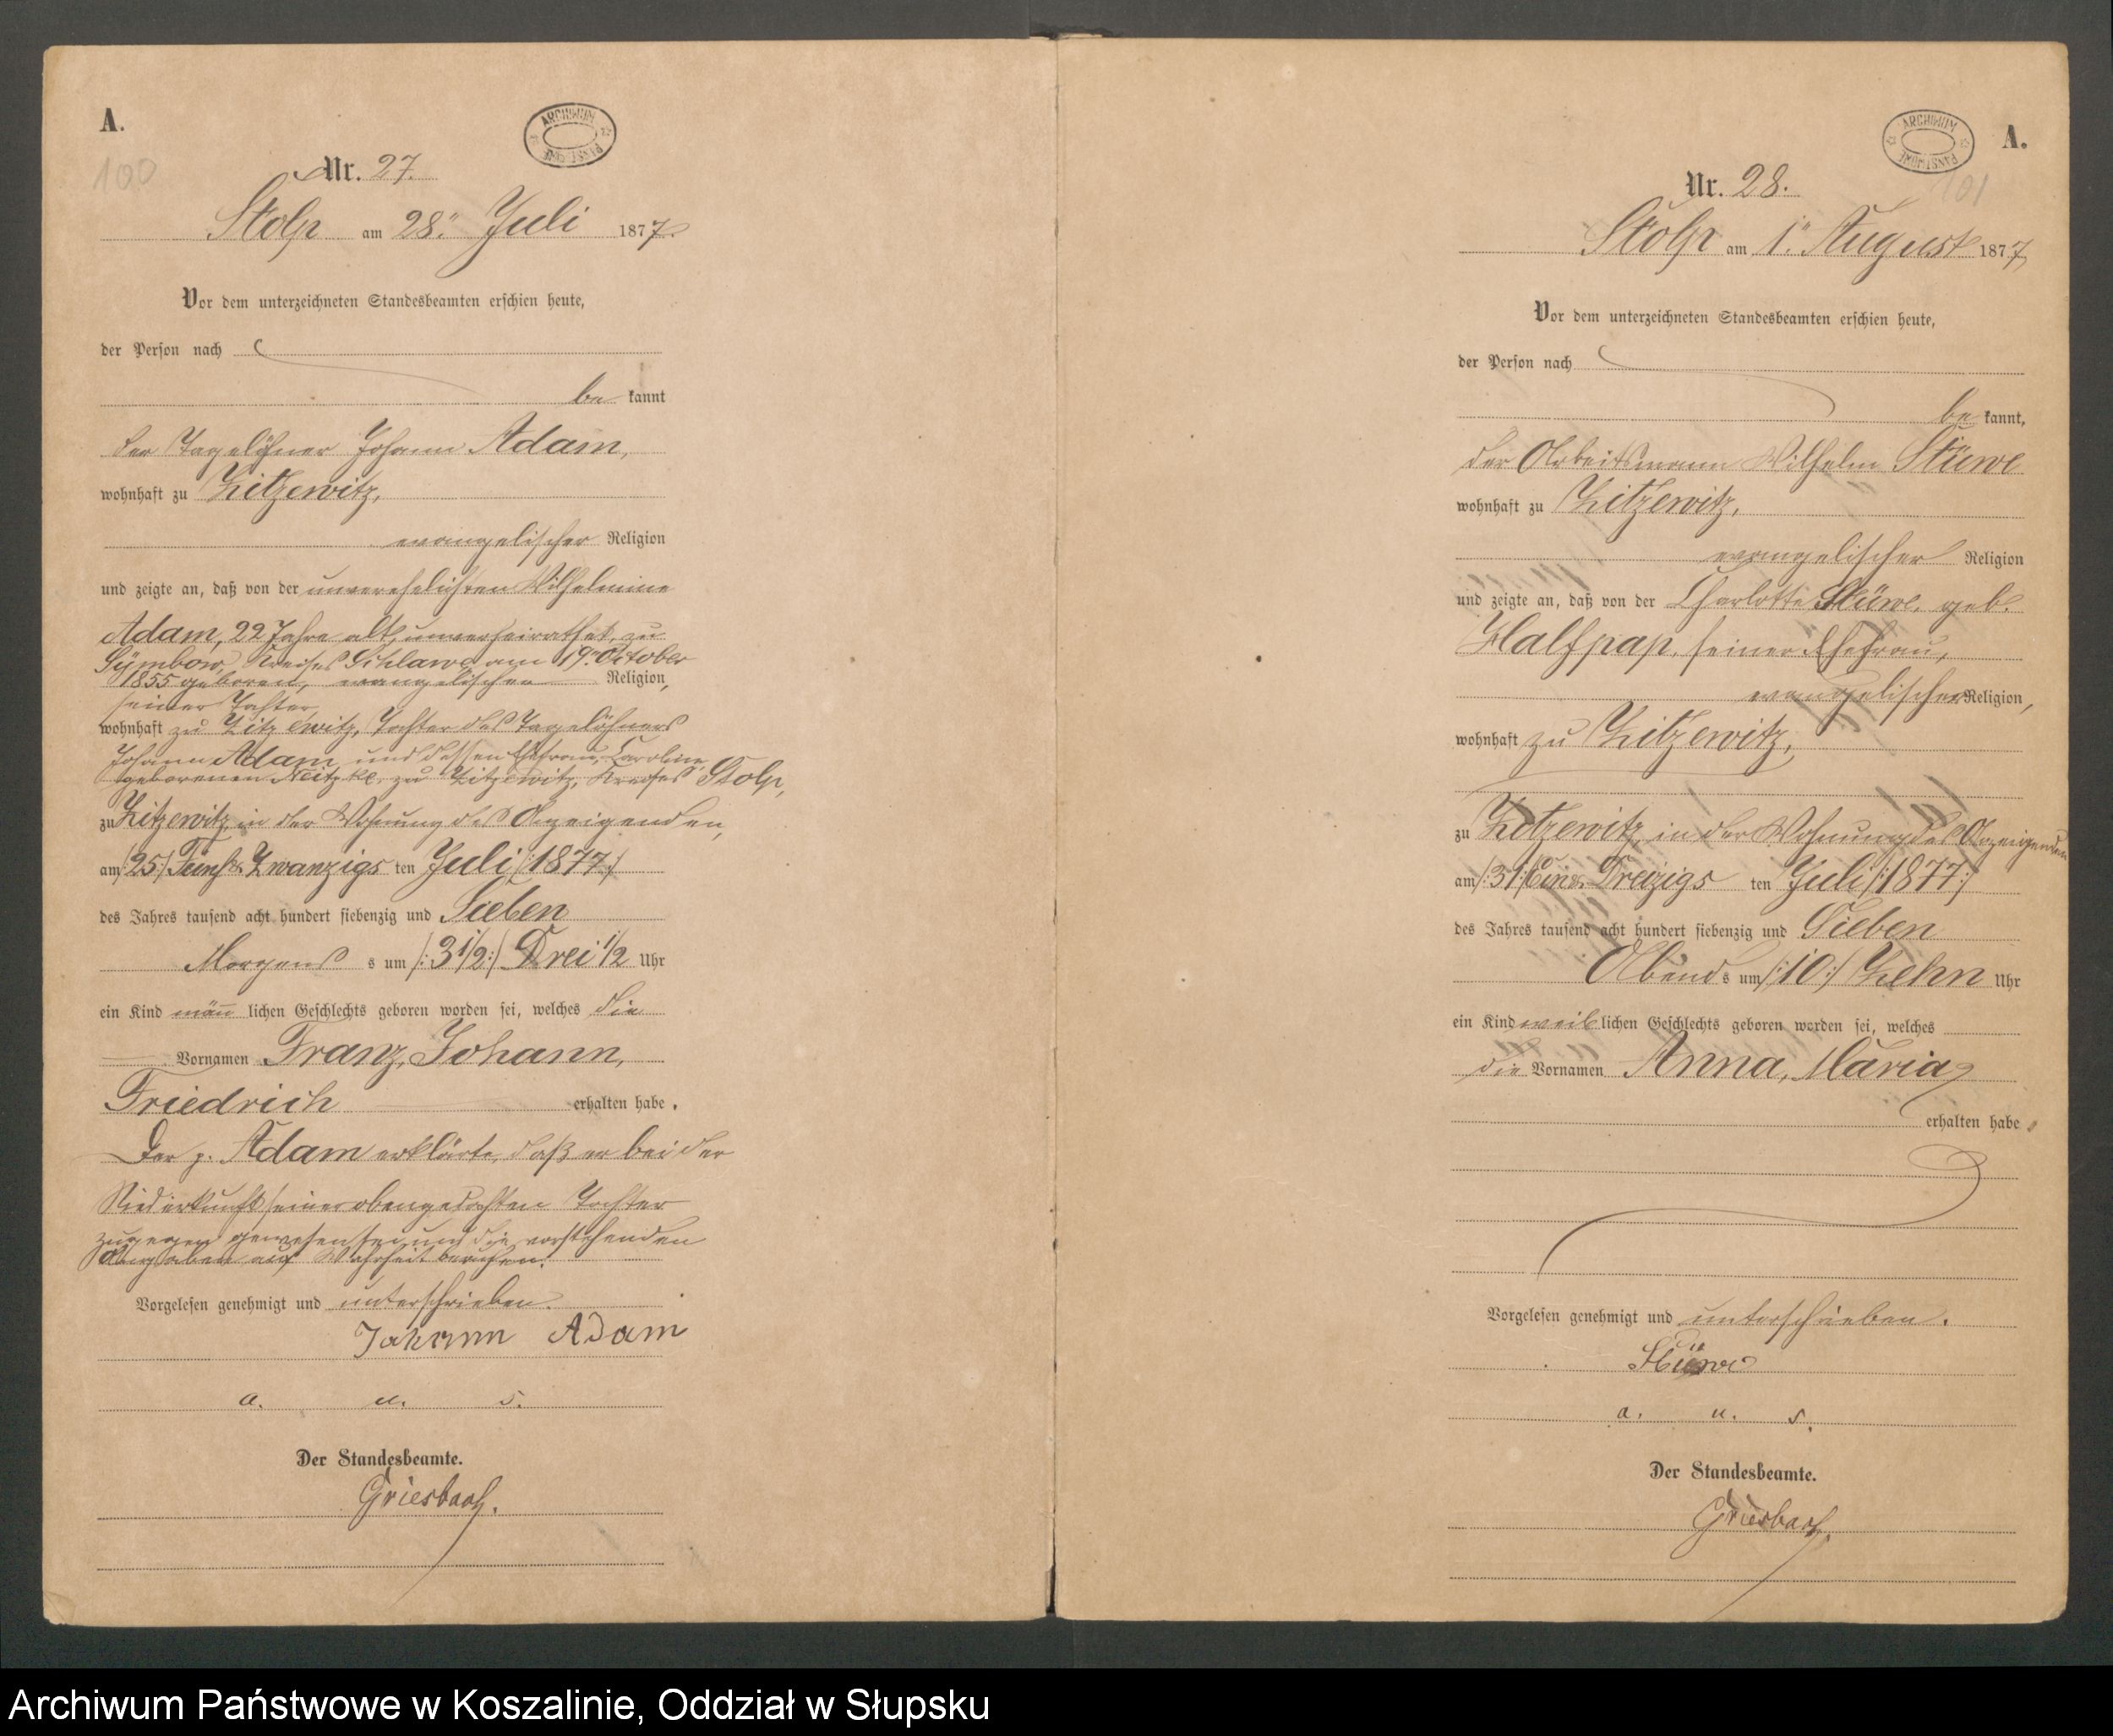 A.
100
ARCHIWUM PAŃSTWOWE
Nr. 27.
Stolp am 28ⁿ Juli 1877.
Vor dem unterzeichneten Standesbeamten erschien heute,
der Person nach
be kannt
der Tagelöhner Johann Adam,
wohnhaft zu Zitzewitz,
evangelischer Religion
und zeigte an, daß von der unverehelichten Wilhelmine
Adam, 22 Jahre alt, unverheirathet, zu
Sÿmbow, Kreises Schlawe am 19ⁿ October
1855 geboren, evangelischer Religion,
seiner Tochter,
wohnhaft zu Zitzewitz, Tochter des Tagelöhners
Johann Adam und dessen Ehefrau, Caroline,
geborenen Neitzke, zu Zitzewitz, Kreises Stolp,
zu Zitzewitz in der Wohnung des Anzeigenden,
am /:25:/ Fünf u. Zwanzigs ten Juli /:1877:/
des Jahres tausend acht hundert siebenzig und Sieben
Morgens s um /:3 1/2:/ Drei 1/2 Uhr
ein Kind männ lichen Geschlechts geboren worden sei, welches die
Vornamen Franz, Johann,
Friedrich erhalten habe.
Der p. Adam erklärte, daß er bei der
Niederkunft seiner obengedachten Tochter
zugegen gewesen sei und die vorstehenden
Angaben auf Wahrheit beruhen.
Vorgelesen genehmigt und unterschrieben.
Johann Adam
a. u. s.
Der Standesbeamte.
Griesbach.
ARCHIWUM PAŃSTWOWE
A.
101
Nr. 28.
Stolp am 1ⁿ August 1877
Vor dem unterzeichneten Standesbeamten erschien heute,
der Person nach
be kannt,
der Arbeitsmann Wilhelm Stüwe
wohnhaft zu Zitzewitz,
evangelischer Religion
und zeigte an, daß von der Charlotte Stüwe, geb.
Halfpap, seiner Ehefrau,
evangelischer Religion,
wohnhaft zu Zitzewitz,
zu Zitzewitz in der Wohnung des Anzeigenden
am /:31:/ Ein u. Dreizigs ten Juli /:1877:/
des Jahres tausend acht hundert siebenzig und Sieben
Abend s um /:10:/ Zehn Uhr
ein Kind weib lichen Geschlechts geboren worden sei, welches
die Vornamen Anna, Maria
erhalten habe.
Vorgelesen genehmigt und unterschrieben.
Stüwe
a. u. s.
Der Standesbeamte.
Griesbach.
Archiwum Państwowe w Koszalinie, Oddział w Słupsku